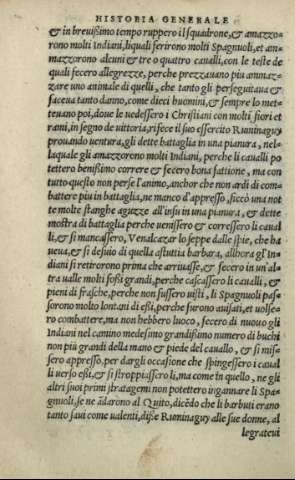 HISTORIA GENERALE
& in breuissimo tempo ruppero il squadrone, & amazzo-
rono molti Indiani, liquali ferirono molti Spagnuoli, et am
mazzorono alcuni & tre o quattro caualli, con le teste de
quali fecero allegrezze, perche prezzauano piu ammaz-
zare uno animale di quelli, che tanto gli perseguitaua &
faceua tanto danno, come dieci huomini, & sempre lo met-
teuano poi, doue le uedessero i Christiani con molti fiori et
rami, in segno de uittoria, rifece il suo essercito Ruminaguy
prouando uentura, gli dette battaglia in una pianura, nel-
laquale gli amazzorono molti Indiani, perche li caualli po
tettero benissimo correre & fecero bona fattione, ma con
tutto questo non perse l'animo, anchor che non ardi di com-
battere piu in battaglia, ne manco d'appresso, ficcò una not
te molte stanghe aguzze all'insu in una pianura, & dette
mostra di battaglia perche uenissero & corressero li caual
li, & si mancassero, Venalcazar lo seppe dalle spie, che ha
ueua, & si desuio di quella astuttia barbara, allhora gl'In-
diani si retirorono prima che arriuasse, & fecero in un'al-
tra ualle molti fossi grandi, perche cascassero li caualli, et
pieni di frasche, perche non fussero uisti, li Spagnuoli pas-
sorono molto lontani di essi, perche furono auisati, et uolse-
ro combattere, ma non hebbero luoco, fecero di nuouo gli
Indiani nel camino medesimo grandissimo numero di buchi
non più grandi della mano & piede del cauallo, & si mis-
sero appresso, per dargli occasione che spingessero i caual
li uerso essi, & si stroppiassero li, ma come in quello, ne gli
altri suoi primi stratagemi non potettero ingannare li Spa-
gnuoli, se ne ãdarono al Quito, dicẽdo che li barbuti erano
tanto saui come ualenti, disse Ruminaguy alle sue donne, al
legrateui